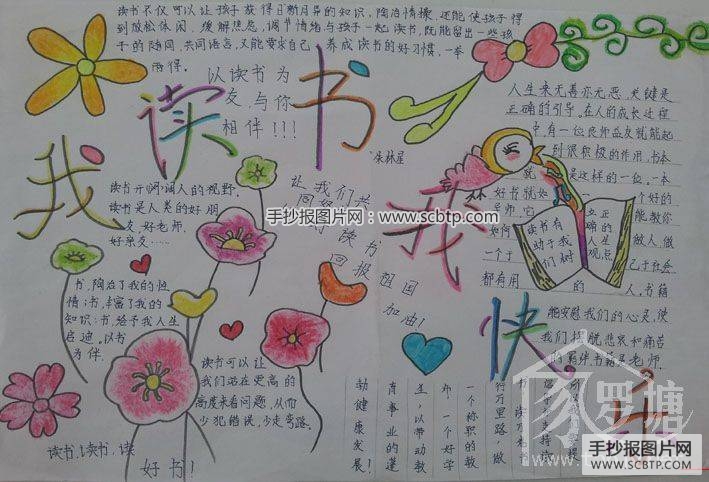 读书不仅可以让孩子获得日新月异的知识,陶冶情操,还能使孩子得
到放松休闲,缓解焦虑,调节情绪与孩子一起读书,既能留出一些孩
子的陪同,共同语言,又能要求自己,养成读书的好习惯,一举
两得。
以读书为
友,与你
相伴!!!
读书
我
读书开阔人的视野。
读书是人类的好朋
友,好老师,
好亲友……
让我们共
读书
回报祖国
加油!
人生来无善亦无恶,关键是
正确的引导。在人的成长过程
中有一位良师益友就能起
到很积极的作用,书本
就是这样的一位。一本
好书就如
一个好的
导师,它
能教你
如何
做人,做
一个于
己于社会
都有用的人,书籍
读书有
助于我
们树
立正
确的
人生
观点
我
快
乐
能安慰我们的心灵,使
我们摆脱悲哀和痛苦
书,陶冶了我的性
情;书,丰富了我的
知识;书,给予我人生
启迪。以书
为伴。
读书可以让
我们站在更高的
高度来看问题,从而
少犯错误,少走弯路。
读书,读书,读
好书!
书,读万卷书
行万里路,做
一个称职的教
师,一个好学
生,以带动教
育事业的蓬
勃健康发展!
手抄报图片网:www.scbtp.com
手抄报图片网
WWW.SCBTP.COM